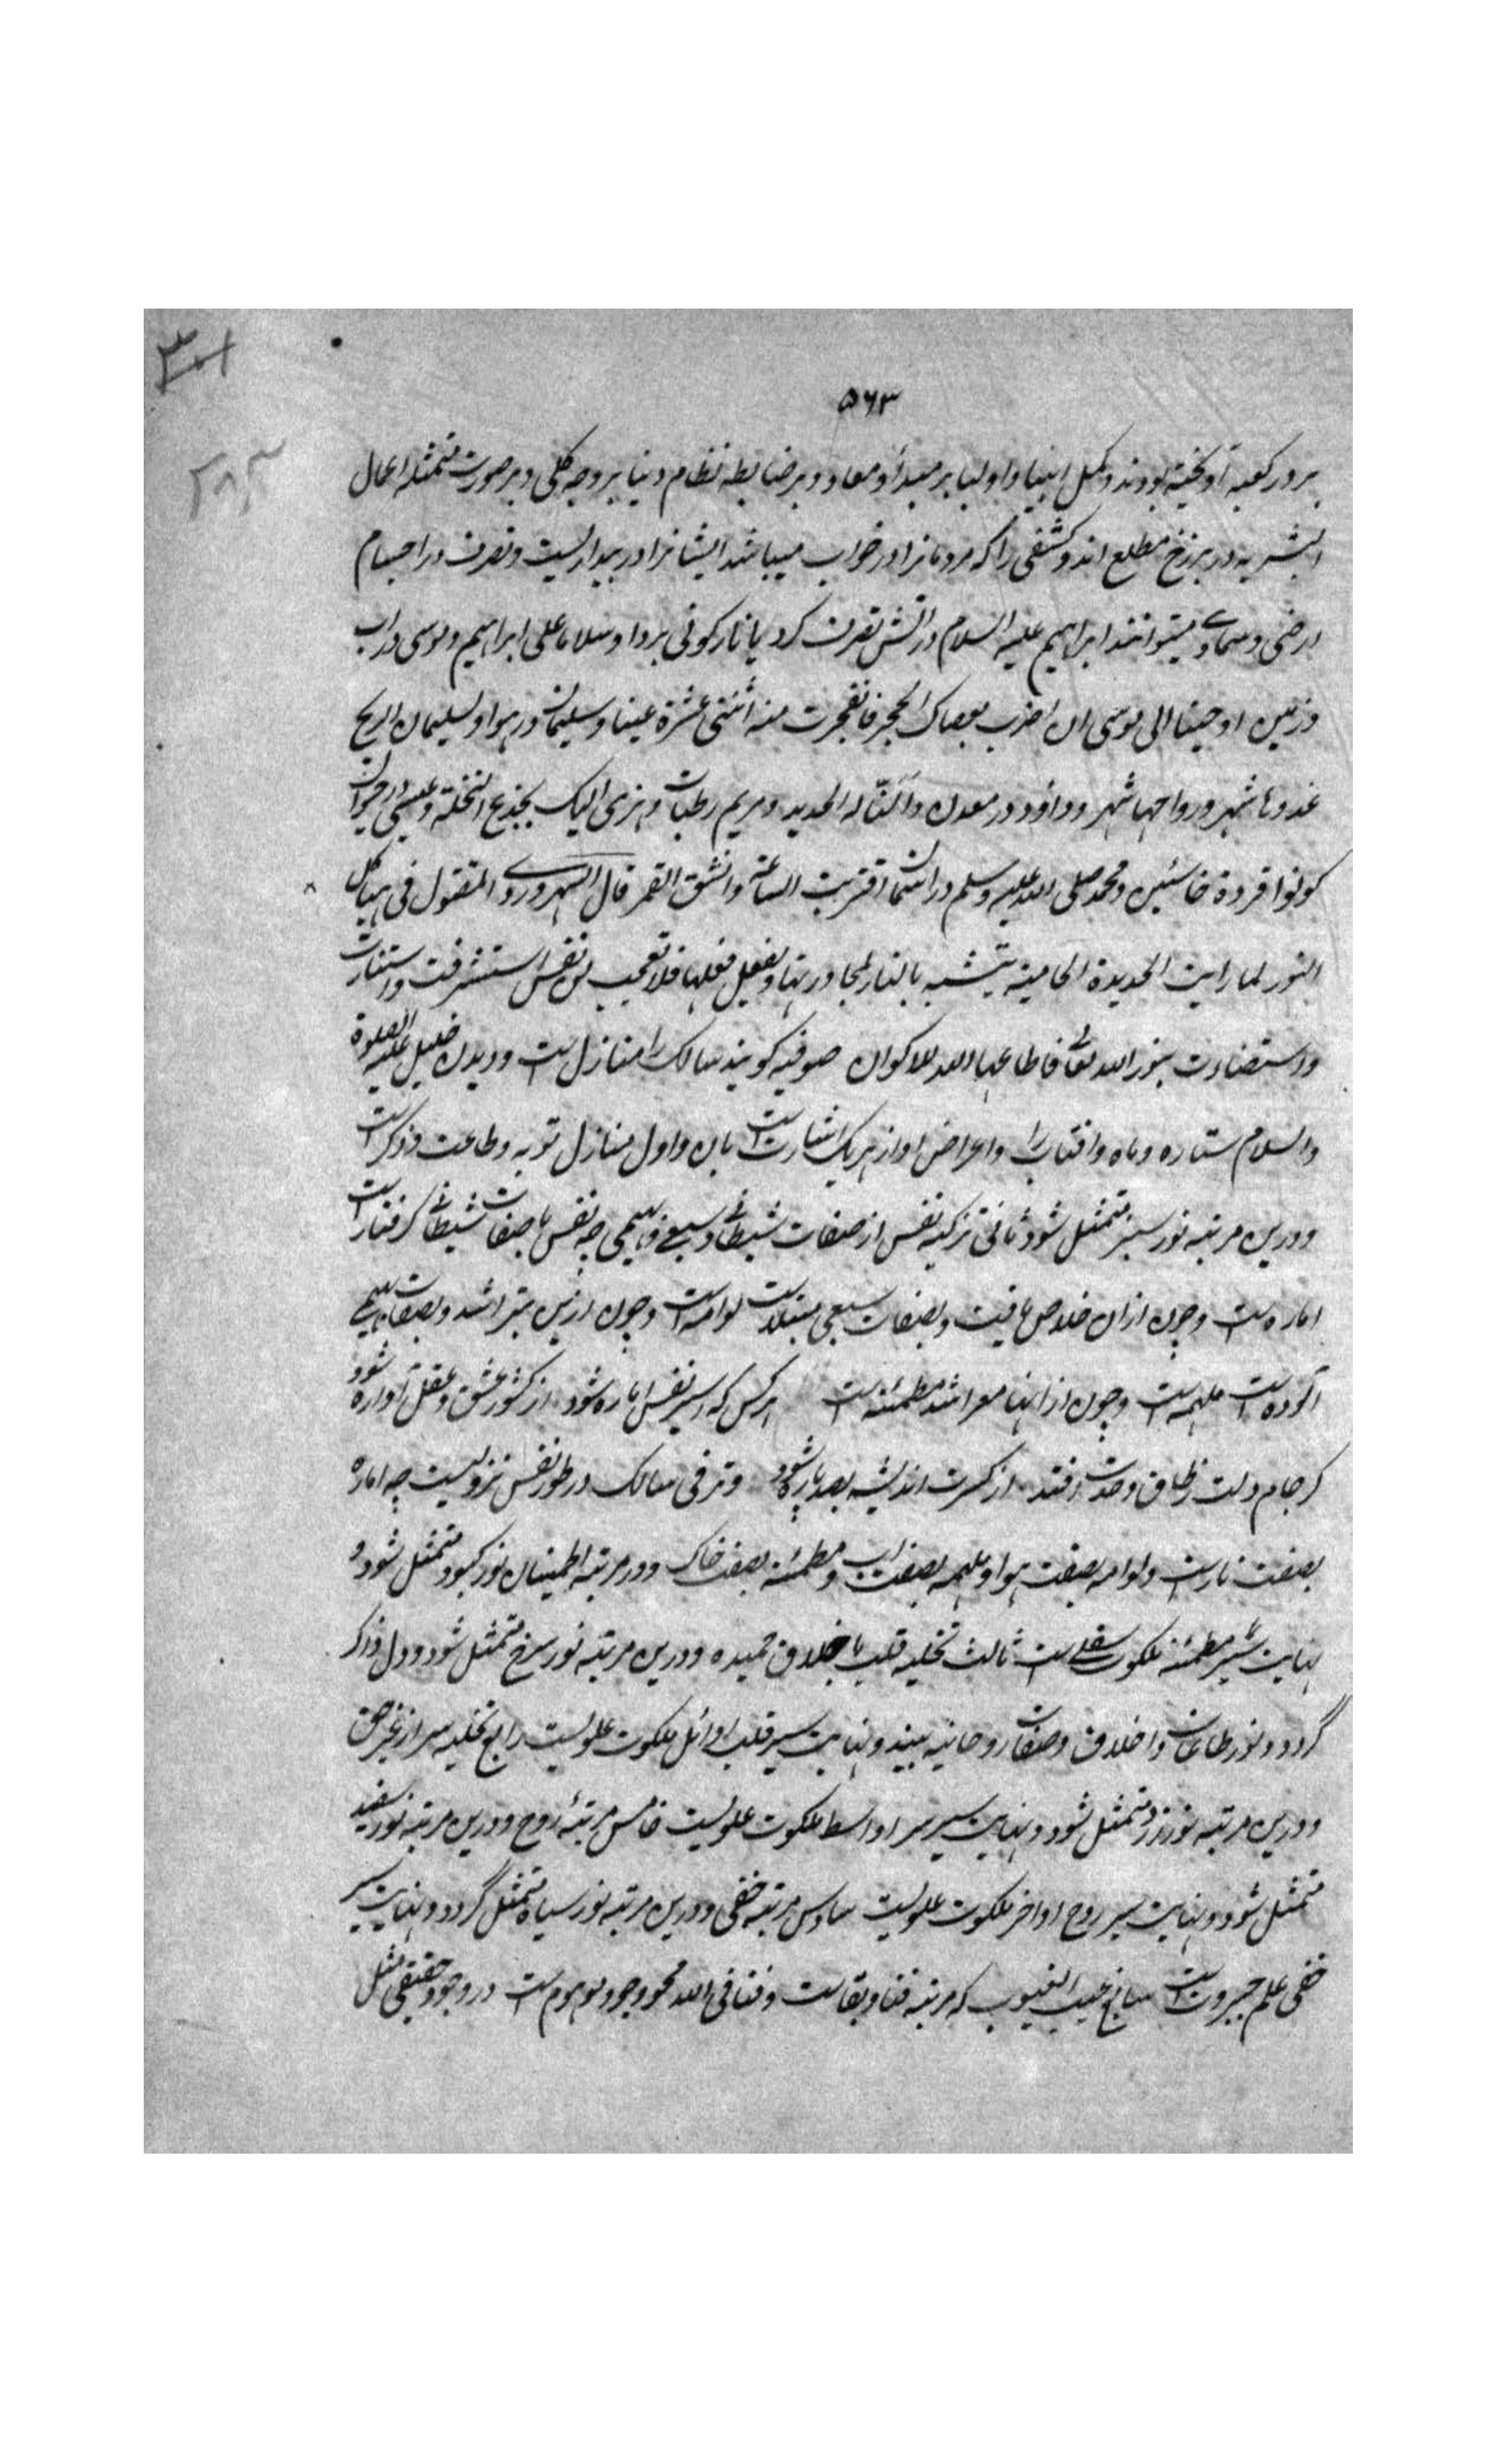 ۵۶۳
بر در کعبه آویخته بودند و کمل انبیا و اولیا بر مبدأ و معاد و بر ضابطه نظام دنیا بر وجه کلی و بر صورت متمثله اعمال
البشریه در برزخ مطلع اند و کشفی را که مردمانرا در خواب میباشد ایشانرا در بیداریست و تصرف در اجسام
ارضی و سماوی میتوانند ابراهیم علیه السلام در آتش تصرف کرد یا نار کونی بردا و سلاما علی ابراهیم و موسی در آب
و زمین اوحینا الی موسی ان اضرب بعصاک الحجر فانفجرت منه اثنتی عشرة عینا و سلیمان در هوا و لسلیمان الریح
غدوها شهر و رواحها شهر و داود در معدن و النّا له الحدید و مریم در نبات و هزی الیک بجذع النخلة و عیسی در حیوان
کونوا قردة خاسئین و محمد صلی الله علیه و سلم در آسمان اقتربت الساعة و انشق القمر قال السهروردی المقتول فی هیاکل
النور لما رایت الحدیدة الحامیة یتشبه بالنار لمجاورتها و یفعل فعلها فلا تعجب من نفس استشرفت و استنارت
و استضاءت بنور الله تعالی فاطاعها الاکوان صوفیه کویند سالک را منازل است و دیدن خلیل علیه الصلوة
والسلام ستاره و ماه و افتاب را و اعراض او از هر یک اشارتست بان و اول منازل توبه و طاعت و ذکر است
و درین مرتبه نور سبز متمثل شود ثانی تزکیه نفس از صفات شیطانی و سبعی و بهیمی چه نفس با صفات شیطانی کرفتار است
اماره است و چون ازان خلاص یافت و بصفات سبعی مبتلاست لوامه است و چون ازین مبرا شد و بصفات بهیمی
آلوده است ملهمه است و چون از اینها معرا شد مطمئنه است هر کس که اسیر نفس اماره شود از کشور عشق و عقل آواره شود
کر جام دلت ز طاق وحدت افتد از کسرت اندیشه بصد پاره شود و ترقی سالک در طور نفس نزولیست چه اماره
بصفت نار است و لوامه بصفت هوا و ملهمه بصفت آب و مطمئنه بصفت خاک و در مرتبه اطمینان نور کبود متمثل شود و
نهایت سیر مطمئنه ملکوت سفلی است ثالث تحلیه قلب باخلاق حمیده و درین مرتبه نور سرخ متمثل شود و دل ذاکر
گردد و نور طاعات و اخلاق و صفات روحانیه بیند و نهایت سیر قلب اوائل ملکوت علویست رابع تخلیه سر از غیر حق
و درین مرتبه نور زرد متمثل شود و نهایت سیر سر اواسط ملکوت علویست خامس مرتبۀ روح و درین مرتبه نور سفید
متمثل شود و نهایت سیر روح اواخر ملکوت علویست سادس مرتبه خفی و درین مرتبه نور سیاه متمثل گردد و نهایت سیر
خفی علم جبروتست سابع غیب الغیوب که مرتبه فنا و بقاست و فنا فی الله محو وجود موهوم است در وجود حقیقی مثل